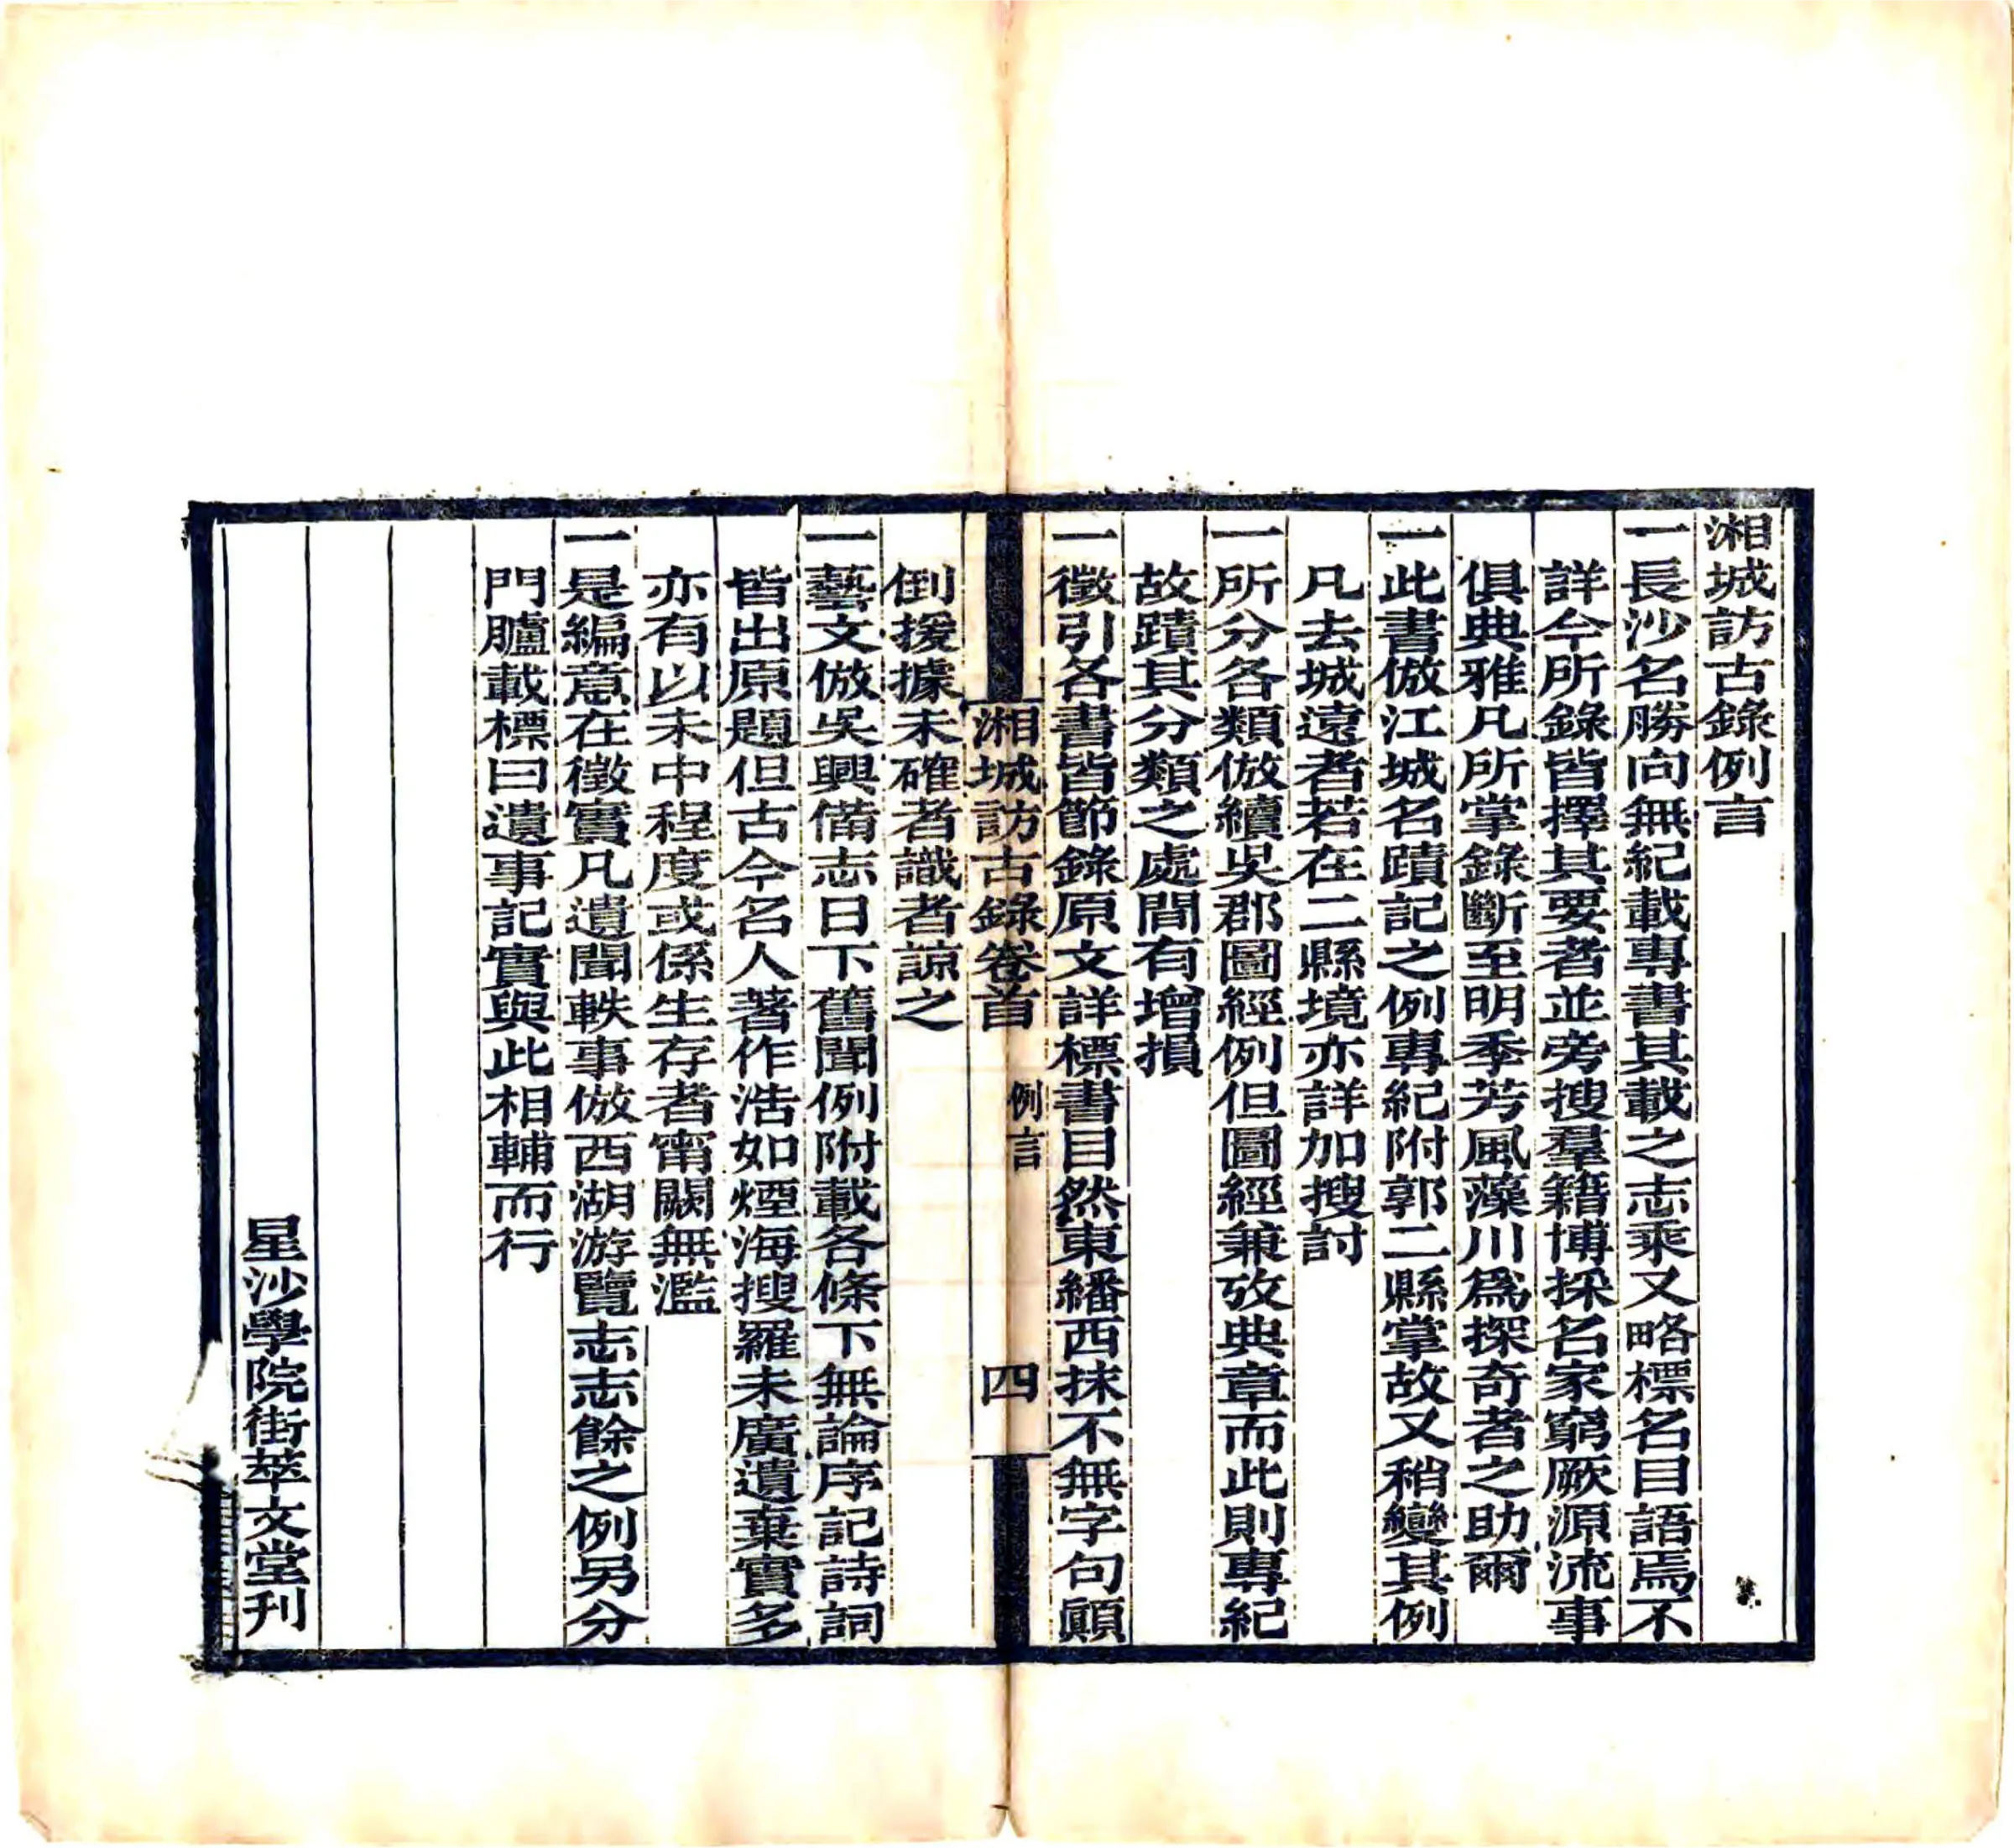 湘城訪古錄例言
一長沙名勝向無紀載專書其載之志乘又略標名目語焉不
詳今所錄皆擇其要者並旁搜羣籍博採名家窮厥源流事
俱典雅凡所掌錄斷至明季芳風藻川爲探奇者之助爾
一此書倣江城名蹟記之例專紀附郭二縣掌故又稍變其例
凡去城遠者若在二縣境亦詳加搜討
一所分各類倣續吳郡圖經例但圖經兼攷典章而此則專紀
故蹟其分類之處間有增損
一徵引各書皆節錄原文詳標書目然東繙西抹不無字句顚
湘城訪古錄卷首 例言 四
倒援據未確者識者諒之
一藝文倣吳興備志日下舊聞例附載各條下無論序記詩詞
皆出原題但古今名人著作浩如煙海搜羅未廣遺棄實多
亦有以未中程度或係生存者甯闕無濫
一是編意在徵實凡遺聞軼事倣西湖游覽志志餘之例另分
門臚載標曰遺事記實與此相輔而行
星沙學院街萃文堂刋